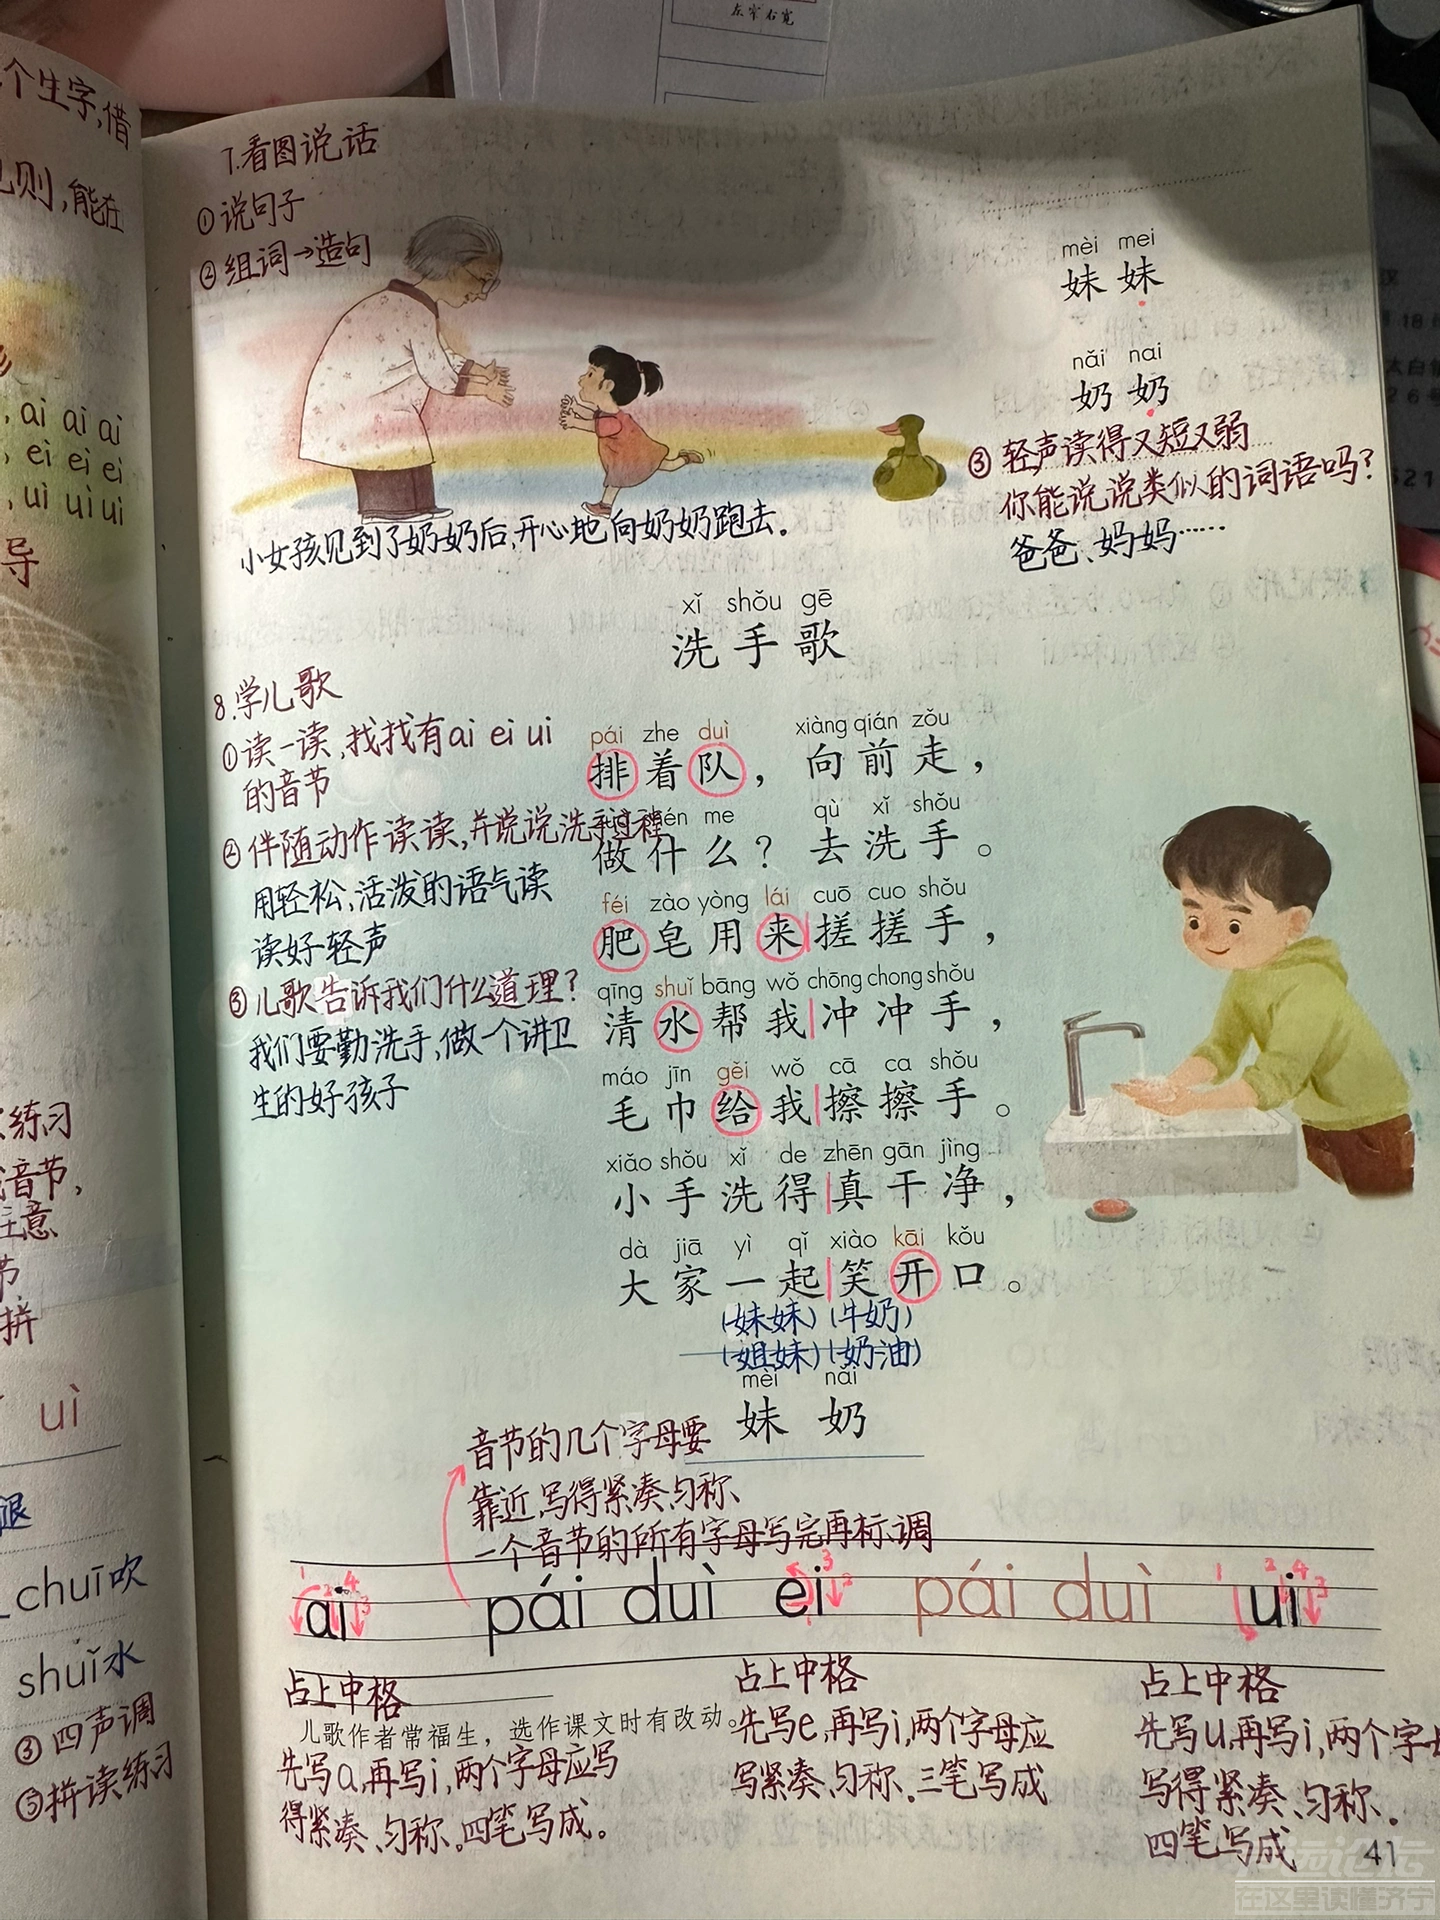 左窄右宽
个生字,借
则,能在
7.看图说话
①说句子
②组词→造句
mèi mei
妹妹
nǎi nai
奶奶
③轻声读得又短又弱
你能说说类似的词语吗?
爸爸、妈妈……
小女孩见到了奶奶后,开心地向奶奶跑去。
, ai ai ai
, ei ei ei
, uì uì uì
导
xǐ shǒu gē
洗手歌
8.学儿歌
①读一读,找找有ai ei ui
的音节
②伴随动作读读,并说说洗手过程
用轻松,活泼的语气读
读好轻声
③儿歌告诉我们什么道理?
我们要勤洗手,做一个讲卫
生的好孩子
pái zhe duì xiàng qián zǒu
排着队,向前走,
me qù xǐ shǒu
做什么?去洗手。
féi zào yòng lái cuō cuo shǒu
肥皂用来搓搓手,
qīng shuǐ bāng wǒ chōng chong shǒu
清水帮我冲冲手,
máo jīn gěi wǒ cā ca shǒu
毛巾给我擦擦手。
xiǎo shǒu xǐ de zhēn gān jìng
小手洗得真干净,
dà jiā yì qǐ xiào kāi kǒu
大家一起笑开口。
(妹妹)(牛奶)
(姐妹)(奶油)
mèi nǎi
妹 奶
练习
音节,
注意
节
拼
uì
chuī吹
shuǐ水
③四声调
⑤拼读练习
音节的几个字母要
靠近,写得紧凑、匀称、
一个音节的所有字母写完再标调
ai pái duì ei pái duì ui
占上中格
儿歌作者常福生,选作课文时有改动。
先写a,再写i,两个字母应写
得紧凑、匀称。四笔写成。
占上中格
先写e,再写i,两个字母应
写紧凑、匀称。三笔写成
占上中格
先写u,再写i,两个字母
写得紧凑、匀称。
四笔写成
41
在这里读懂济宁